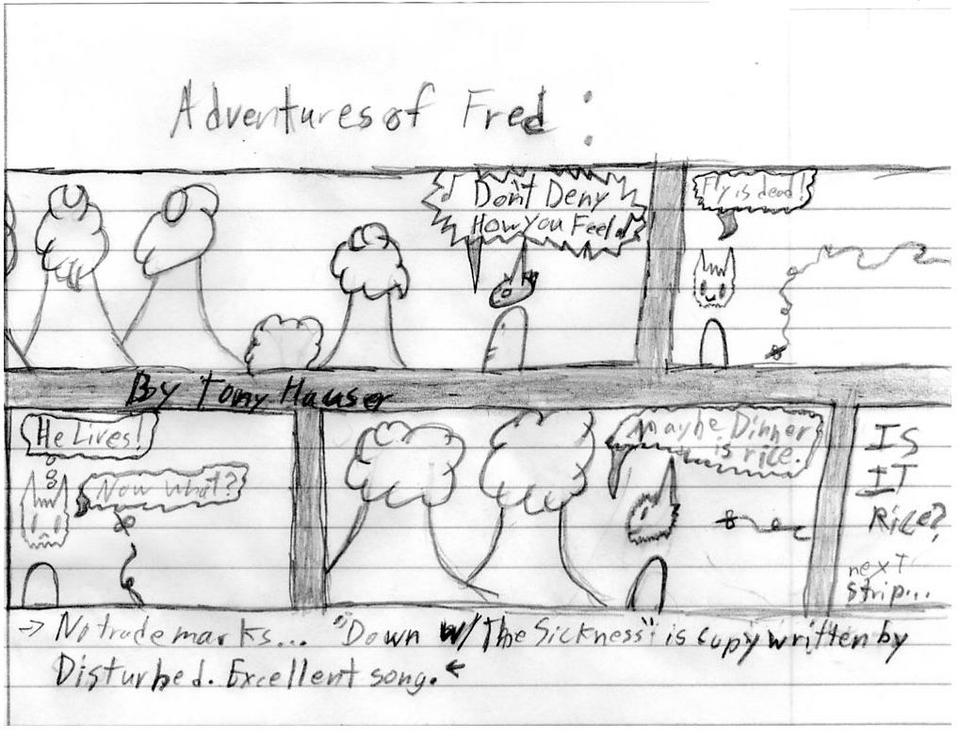 Adventures of Fred :
Don't Deny
How you Feel
Fly is dead!
By Tony Hauser
He Lives!
Now what?
Maybe Dinner
is rice.
IS
IT
RICE?
next
strip...
→ No trade marks... "Down w/ The Sickness" is copy written by
Disturbed. Excellent song. ←